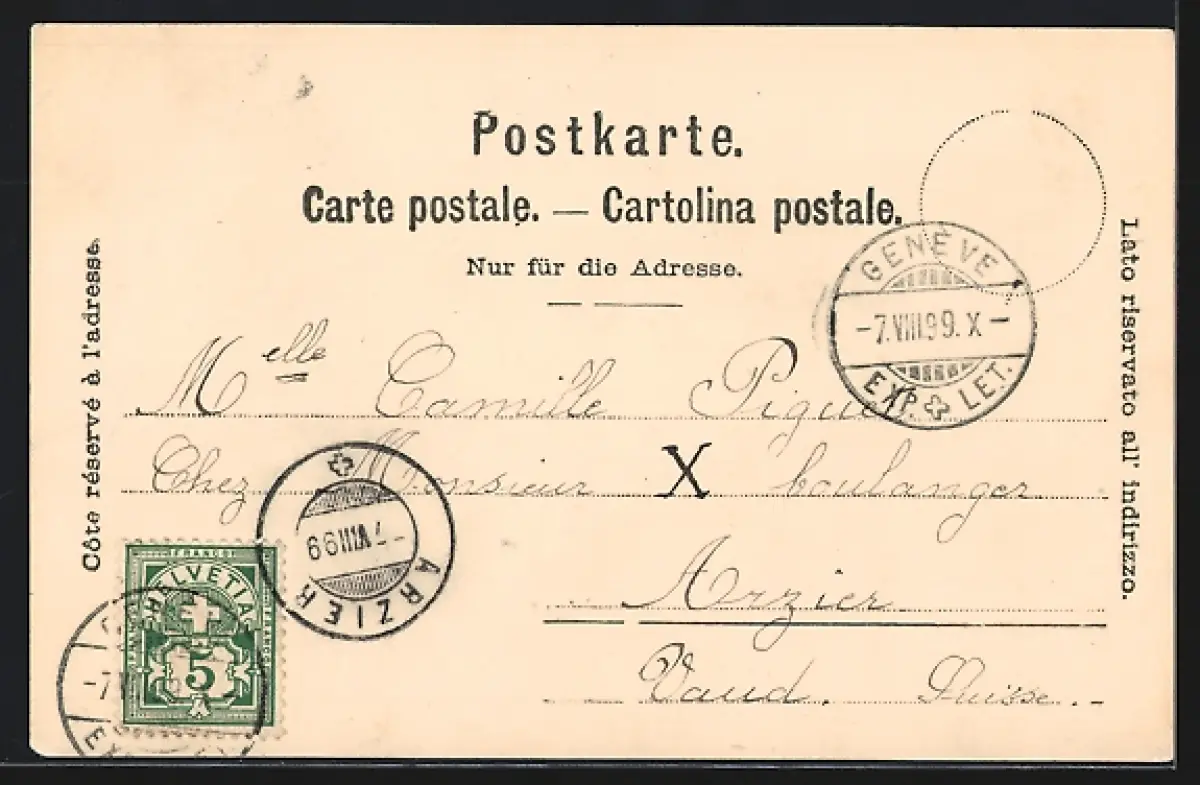 Postkarte.
Carte postale. — Cartolina postale.
Nur für die Adresse.
Côte réservé à l'adresse.
Lato riservato all' indirizzo.
GENÈVE
-7.VIII.99.X-
EXP. LET.
Melle Camille Piguet
Chez Monsieur X boulanger
Arzier
Vaud. Suisse.
ARZIER
-7 VIII 99
FRANCO
HELVETIA
FRANCO
FRANCO
5
-7
EX